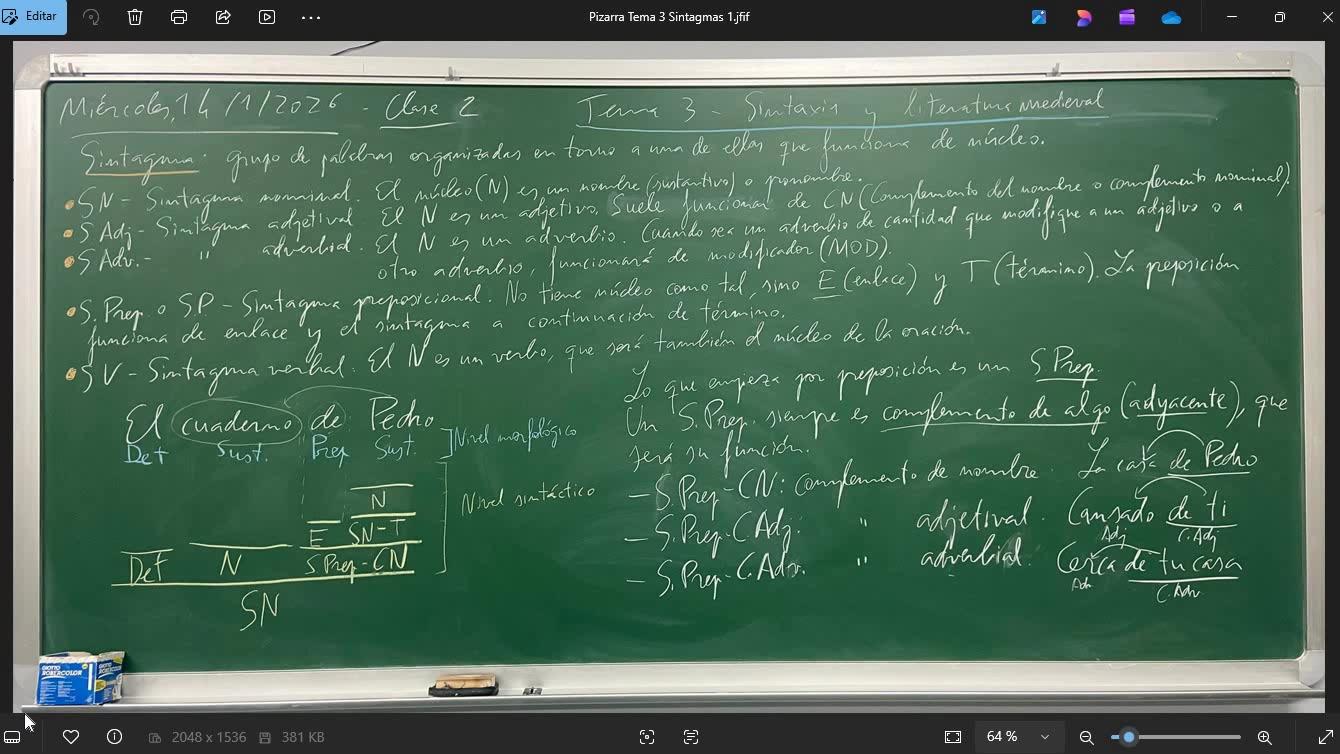 Editar
Pizarra Tema 3 Sintagmas 1.jfif
Miércoles, 14/1/2026 - Clase 2
Tema 3 - Sintaxis y literatura medieval
Sintagma: grupo de palabras organizadas en torno a una de ellas que funciona de núcleo.
SN - Sintagma nominal. El núcleo (N) es un nombre (sustantivo) o pronombre.
S Adj - Sintagma adjetival El N es un adjetivo. Suele funcionar de CN (Complemento del nombre o complemento nominal).
S Adv.- " adverbial. El N es un adverbio. Cuando sea un adverbio de cantidad que modifique a un adjetivo o a
otro adverbio, funcionará de modificador (MOD).
S. Prep. o SP - Sintagma preposicional. No tiene núcleo como tal, sino E (enlace) y T (término). La preposición
funciona de enlace y el sintagma a continuación de término.
SV - Sintagma verbal. El N es un verbo, que será también el núcleo de la oración.
El cuaderno de Pedro
Det Sust. Prep Sust.
Nivel morfológico
Nivel sintáctico
N
E SN-T
Det N S Prep-CN
SN
Lo que empieza por preposición es un S Prep.
Un S. Prep. siempre es complemento de algo (adyacente), que
será su función.
- S. Prep-CN: Complemento de nombre. La casa de Pedro
- S. Prep-C Adj: " adjetival. Cansado de ti
Adj C. Adj
- S. Prep-C. Adv. " adverbial. Cerca de tu casa
Adv C. Adv
GIOTTO
ROBERCOLOR
GIOTTO
ROBERCOLOR
2048 x 1536
381 KB
64 %